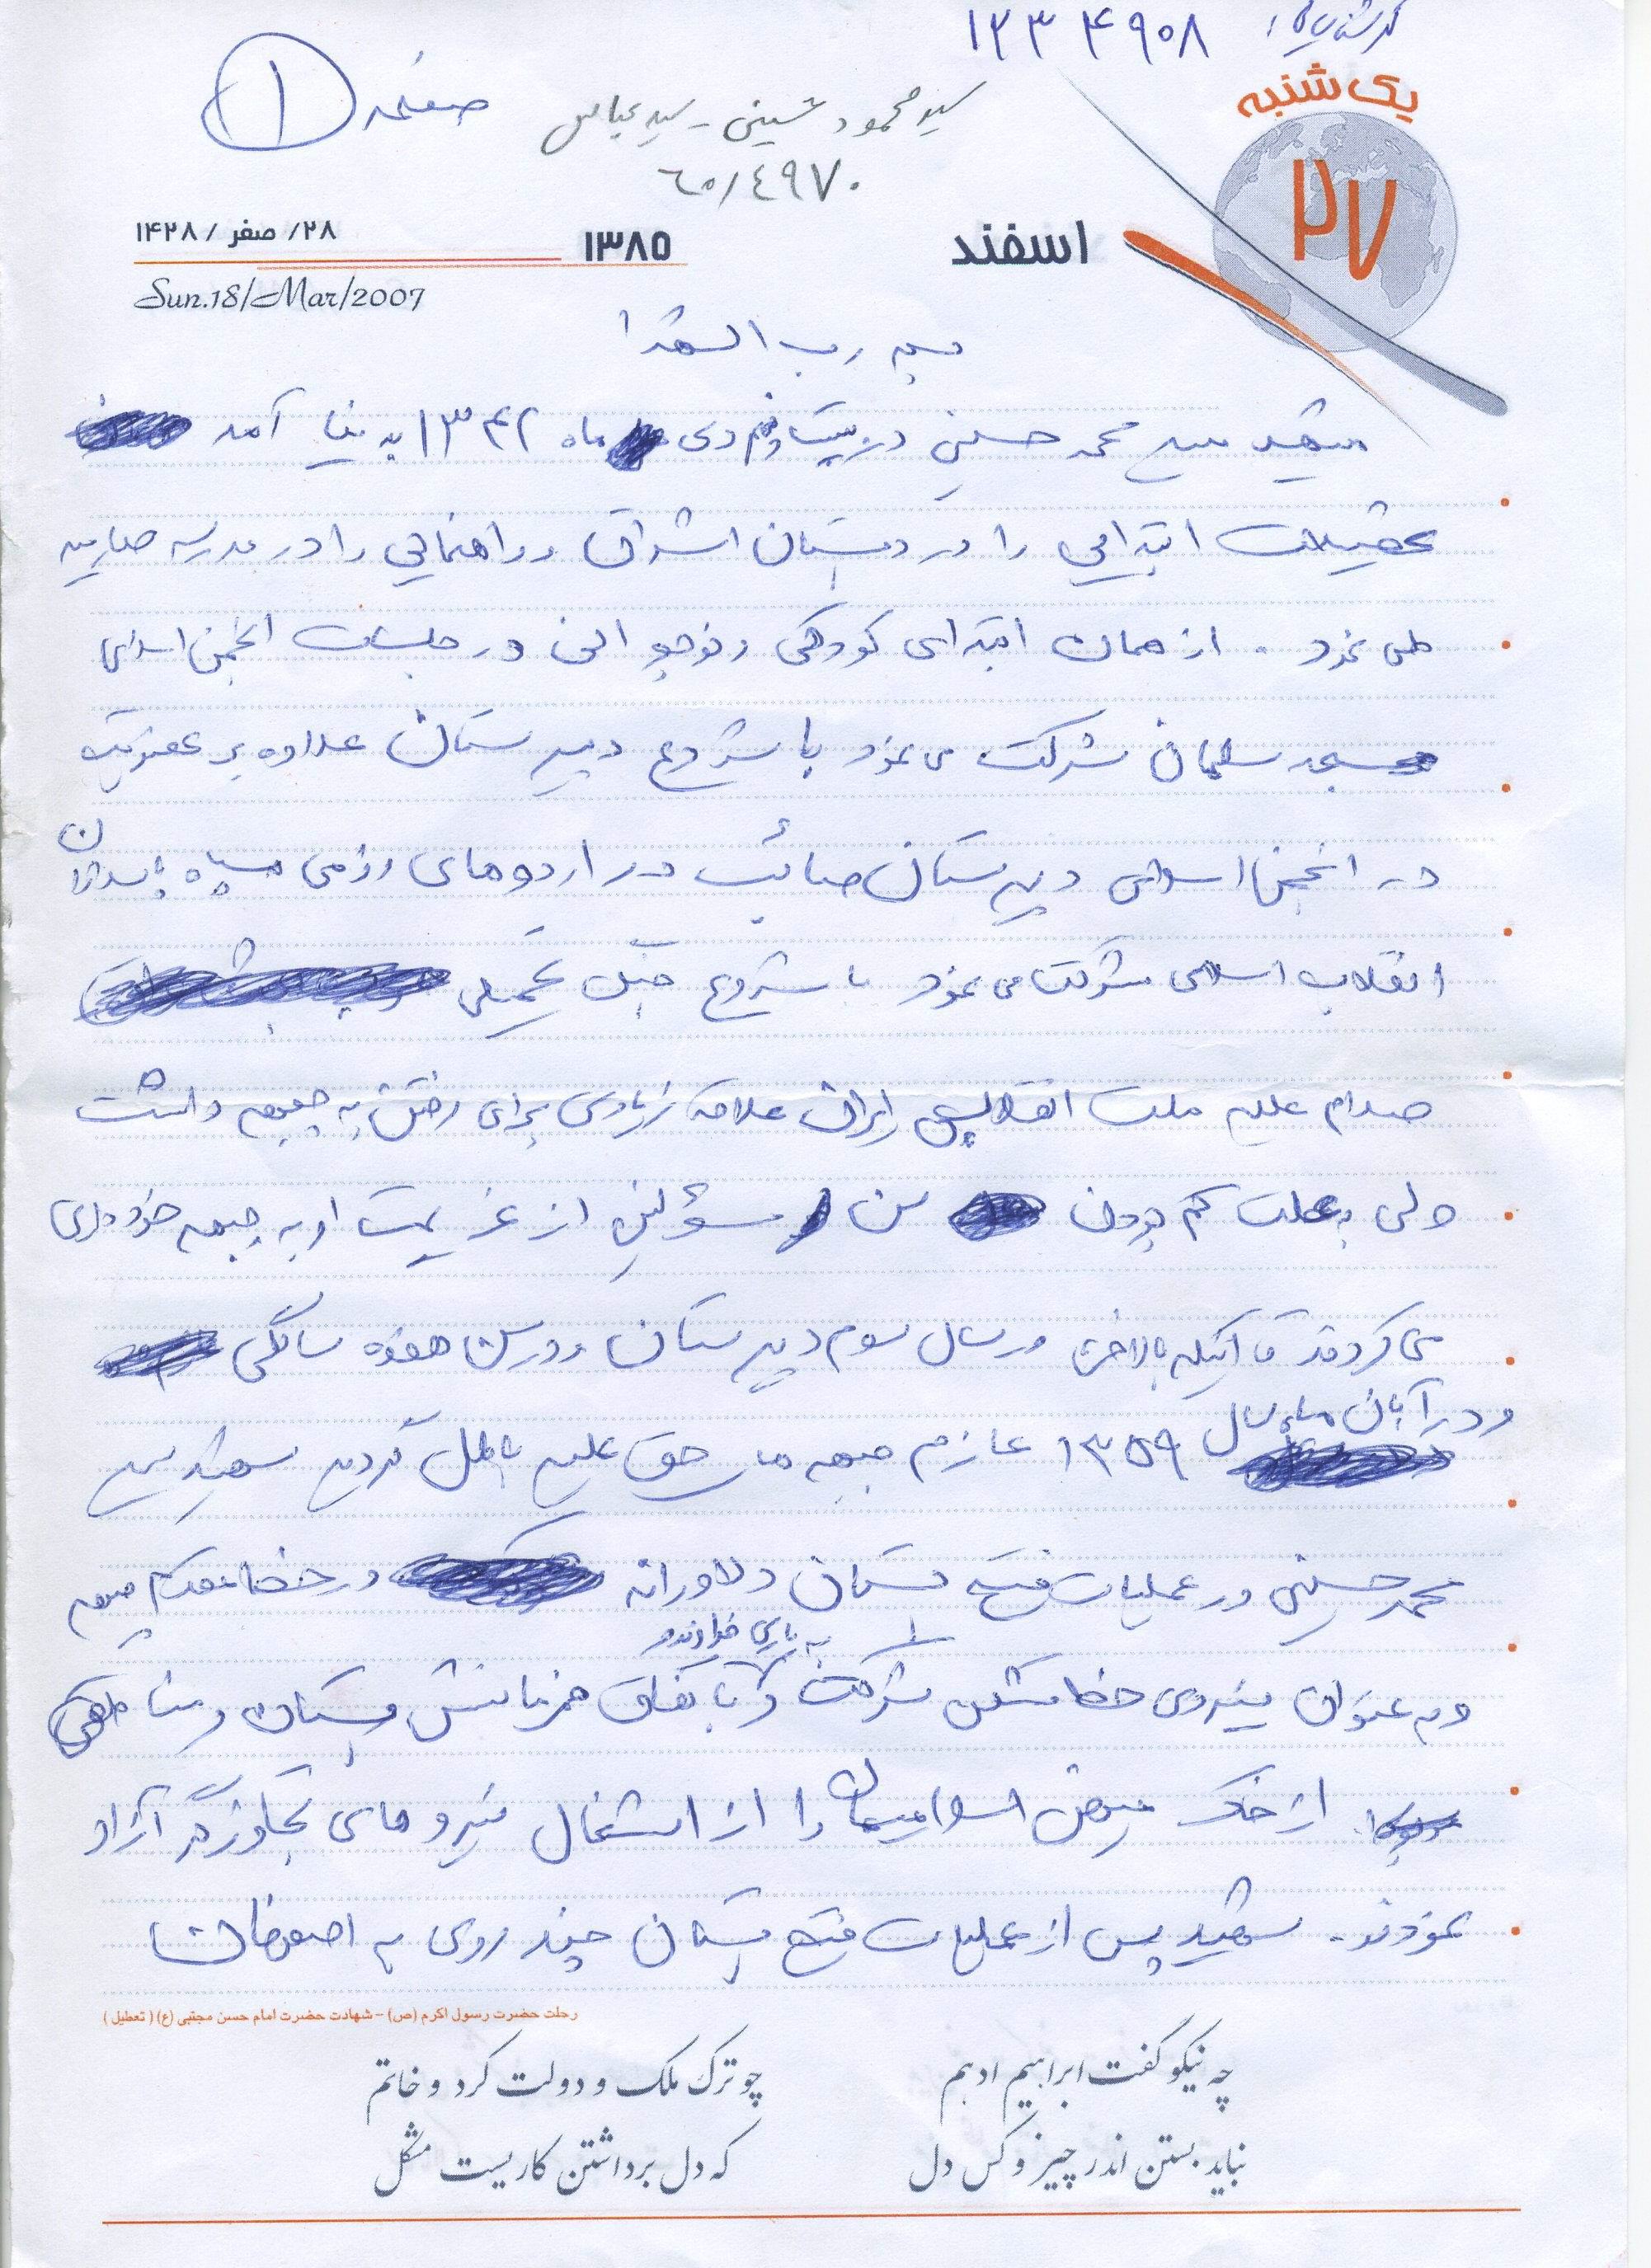 کد شناسایی: ۱۲۳۴۹۰۸
یک شنبه
صفحه ۱
سید محمود حسینی - سید عباس
۶۰/۴۹۷۰
۲۷
اسفند
۱۳۸۵
۲۸/ صفر / ۱۴۲۸
Sun.18/Mar/2007
بسم رب الشهدا
شهید سید محمد حسینی در بیست و دی ماه ۱۳۴۲ به دنیا آمد
تحصیلات ابتدایی را در دبستان اشراق و راهنمایی را در مدرسه
طی نمود . از همان ابتدای کودکی و نوجوانی در جلسات انجمن اسلامی
مسجد سلمان شرکت می نمود با شروع دبیرستان علاوه بر عضویت
در انجمن اسلامی دبیرستان صائب در اردوهای رزمی سپاه پاسداران
انقلاب اسلامی شرکت می نمود با شروع جنگ تحمیلی
صدام علیه ملت انقلابی ایران علاقه زیادی برای رفتن به جبهه داشت
ولی بعلت کم بودن سن مسؤلین از عزیمت او به جبهه خودداری
می کردند تا اینکه بالاخره در سال سوم دبیرستان و در سن هفده سالگی
و در آبان ماه سال ۱۳۵۹ عازم جبهه های حق علیه باطل گردید شهید سید
محمد حسینی در عملیات فتح بستان دلاورانه در خط مقدم جبهه
و به عنوان نیروی خط شکن شرکت و به یاری خداوند با تفاق همرزمانش بستان و مناطقی
از خاک میهن اسلامیمان را از اشغال نیروهای تجاوزگر آزاد
نمودند. شهید پس از عملیات فتح بستان چند روزی به
رحلت حضرت رسول اکرم (ص) - شهادت حضرت امام حسن مجتبی (ع) ( تعطیل )
چه نیکو گفت ابراهیم ادهم چو ترک ملک و دولت کرد و خاتم
نباید بستن اندر چیز و کس دل که دل برداشتن کاریست مشکل